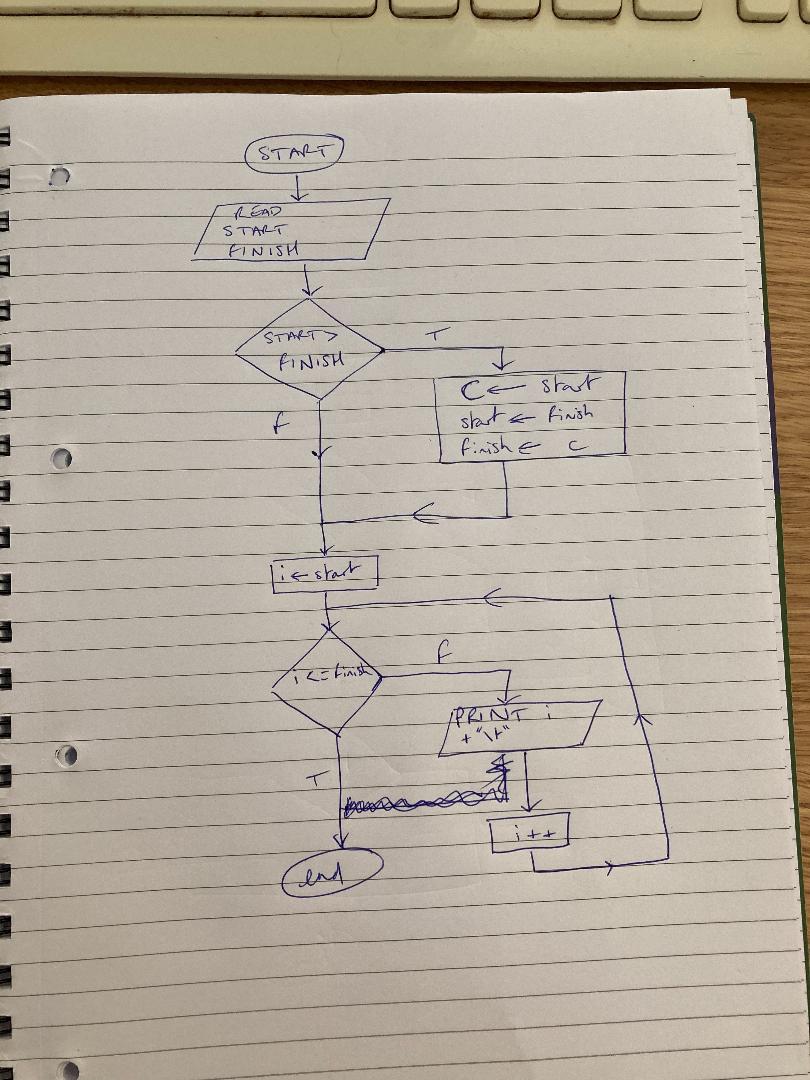 START
READ
START
FINISH
START >
FINISH
T
F
C ← start
start ← finish
finish ← c
i ← start
i <= finish
F
PRINT i
+ "\t"
T
i ++
end